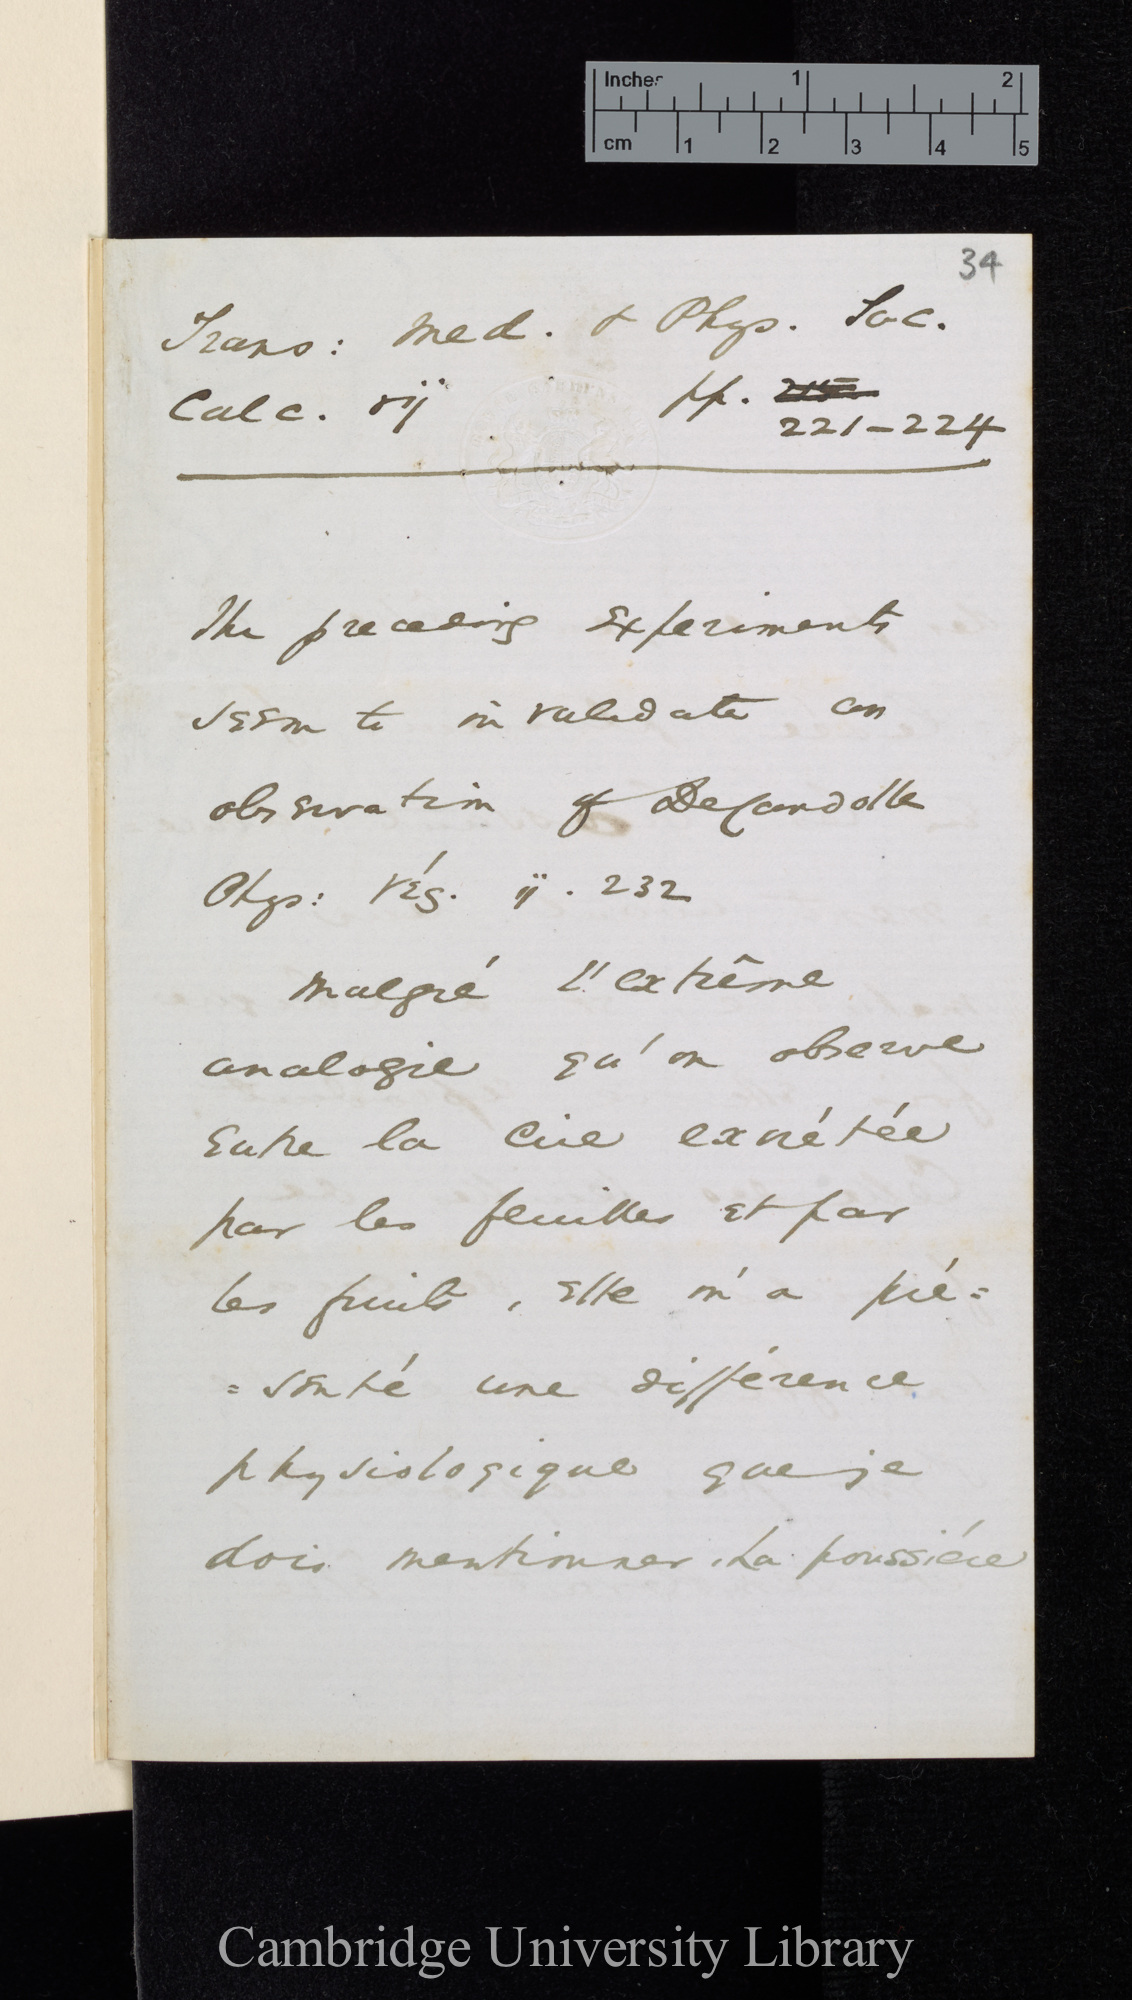 Inches 1 2
cm 1 2 3 4 5
34
Trans: Med. & Phys. Soc.
Calc. vij pp.
221–224
The preceding Experiments
seem to invalidate an
observation of DeCandolle
Phys: Vég. ij. 232
Malgré l'extrême
analogie qu'on observe
Entre la Cire excrétée
par les feuilles et par
les fruits, Elle m'a pré=
=senté une différence
physiologique que je
dois mentionner. La poussiére
Cambridge University Library